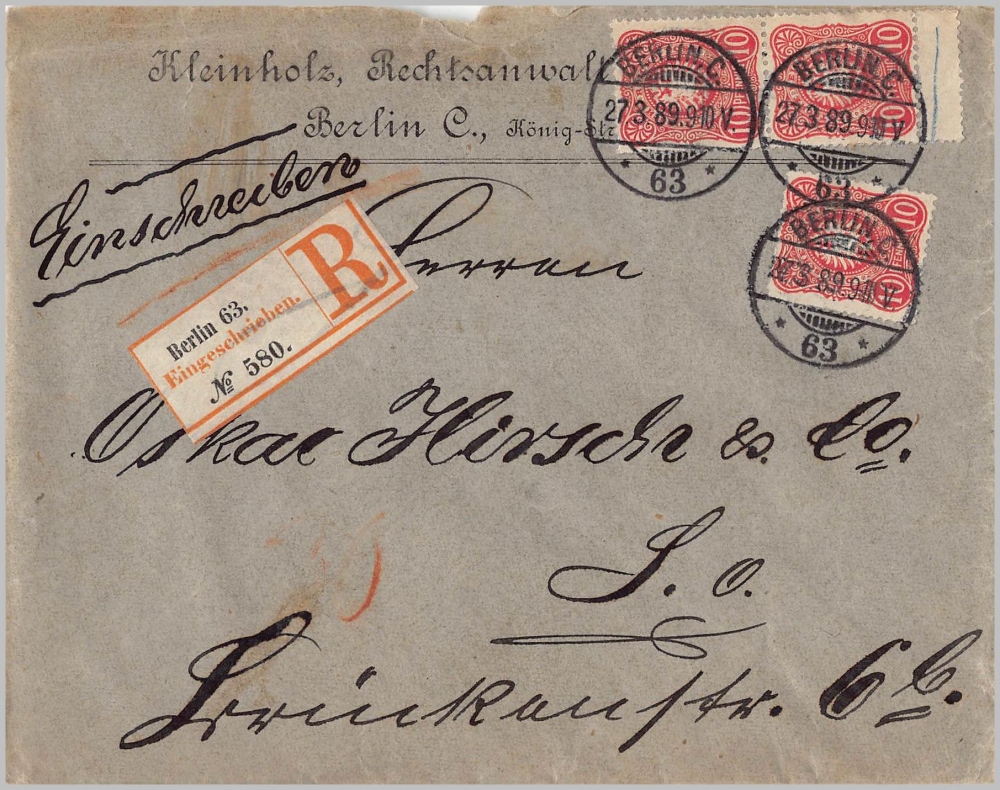 Kleinholz, Rechtsanwalt
Berlin C., König-Str
Einschreiben
10 10
BERLIN.C.
27.3.89.9-10V.
63
BERLIN.C.
27.3.89.9-10V
63
10
10
BERLIN.C.
27.3.89.9-10V
63
R
Berlin 63.
Eingeschrieben.
№ 580.
Herren
Oskar Hirsch & Co.
S. o.
Brückenstr. 6 b.